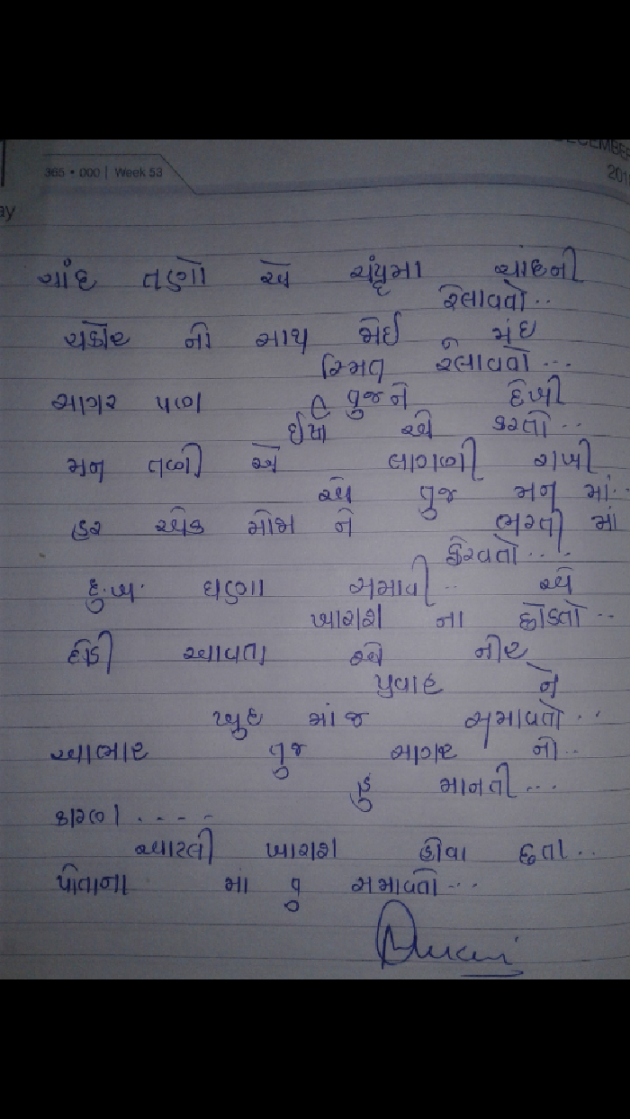 DECEMBER
201
365 • 000 | Week 53
ay
ચાંદ તણો એ ચંદ્રમા ચાંદની
રેલાવતો..
ચકોર નો સાથ જોઈ મંદ
સ્મિત રેલાવતો...
સાગર પણ તુજને દેખી
ઈર્ષા એ કરતો..
મન તણી એ લાગણી રાખી
એ તુજ મન માં..
હર એક મોજા ને ભરતી માં
ફેરવતો...
દુ:ખ ઘણા સમાવી.. એ
ખારાશ ના છોડતો..
દોડી આવતા એ નીર
પ્રવાહ ને
ખુદ માંજ સમાવતો..
આભાર તુજ સાગર નો..
હુ માનતી...
કારણ.....
આટલી ખારાશ હોવા છતા..
પોતાના માં તુ સમાવતો...